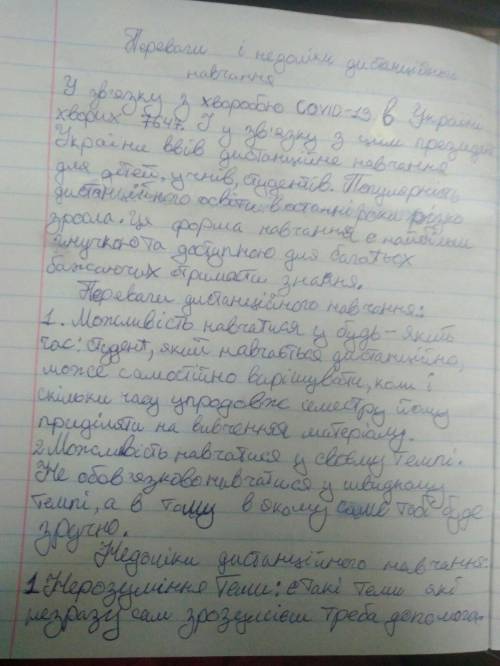 Переваги і недоліки дистанційного
навчання
У зв'язку з хворобою COVID-19 в Україні
хворих 7647. І у зв'язку з цим президент
України ввів дистанційне навчання
для дітей, учнів, студентів. Популярність
дистанційного освіти в останні роки різко
зросла. Ця форма навчання є найбільш
гнучкою та доступною для багатьох
бажаючих отримати знання.
Переваги дистанційного навчання:
1. Можливість навчатися у будь-який
час: студент, який навчається дистанційно,
може самостійно вирішувати, коли і
скільки часу упродовж семестру йому
приділяти на вивчення матеріалу.
2 Можливість навчатися у своєму темпі.
Не обов'язково навчатися у швидкому
темпі, а в тому в якому саме тобі буде
зручно.
Недоліки дистанційного навчання:
1. Нерозуміння теми: є такі теми які
незразу сам зрозумієш треба допомога